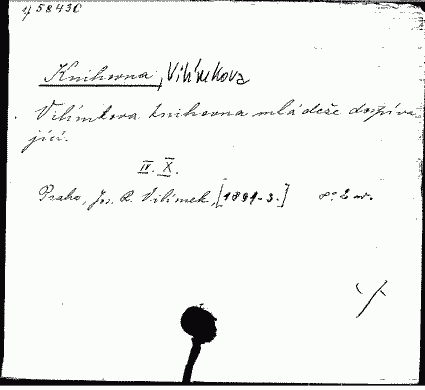 5843C
Knihovna, Vilímkova
Vilímkova knihovna mládeže dospíva-
jící.
IV. X.
Praha, Jos. R. Vilímek, [1891-3.] 8° 2 sv.